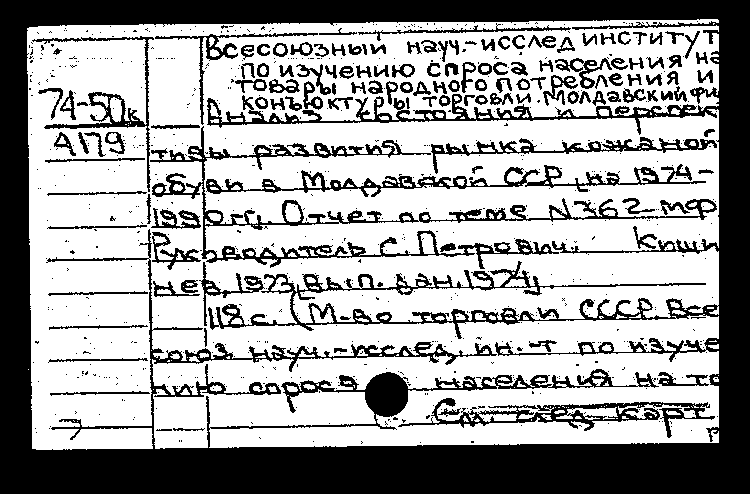 Всесоюзный науч.-исслед институт
по изучению спроса населения на
товары народного потребления и
конъюктуры торговли. Молдавский фи
74-50к
Анализ состояния и перспек
А179
тивы развития рынка кожаной
обуви в Молдавской ССР на 1974-
1990 гг. Отчет по теме N 762-мф
Руководитель С. Петрович. Киши
нев, 1973, [Вып. дан. 1974].
118 с. (М-во торговли СССР. Все
союз. науч.-исслед. ин.-т по изуче
нию спроса населения на то
См. след карт